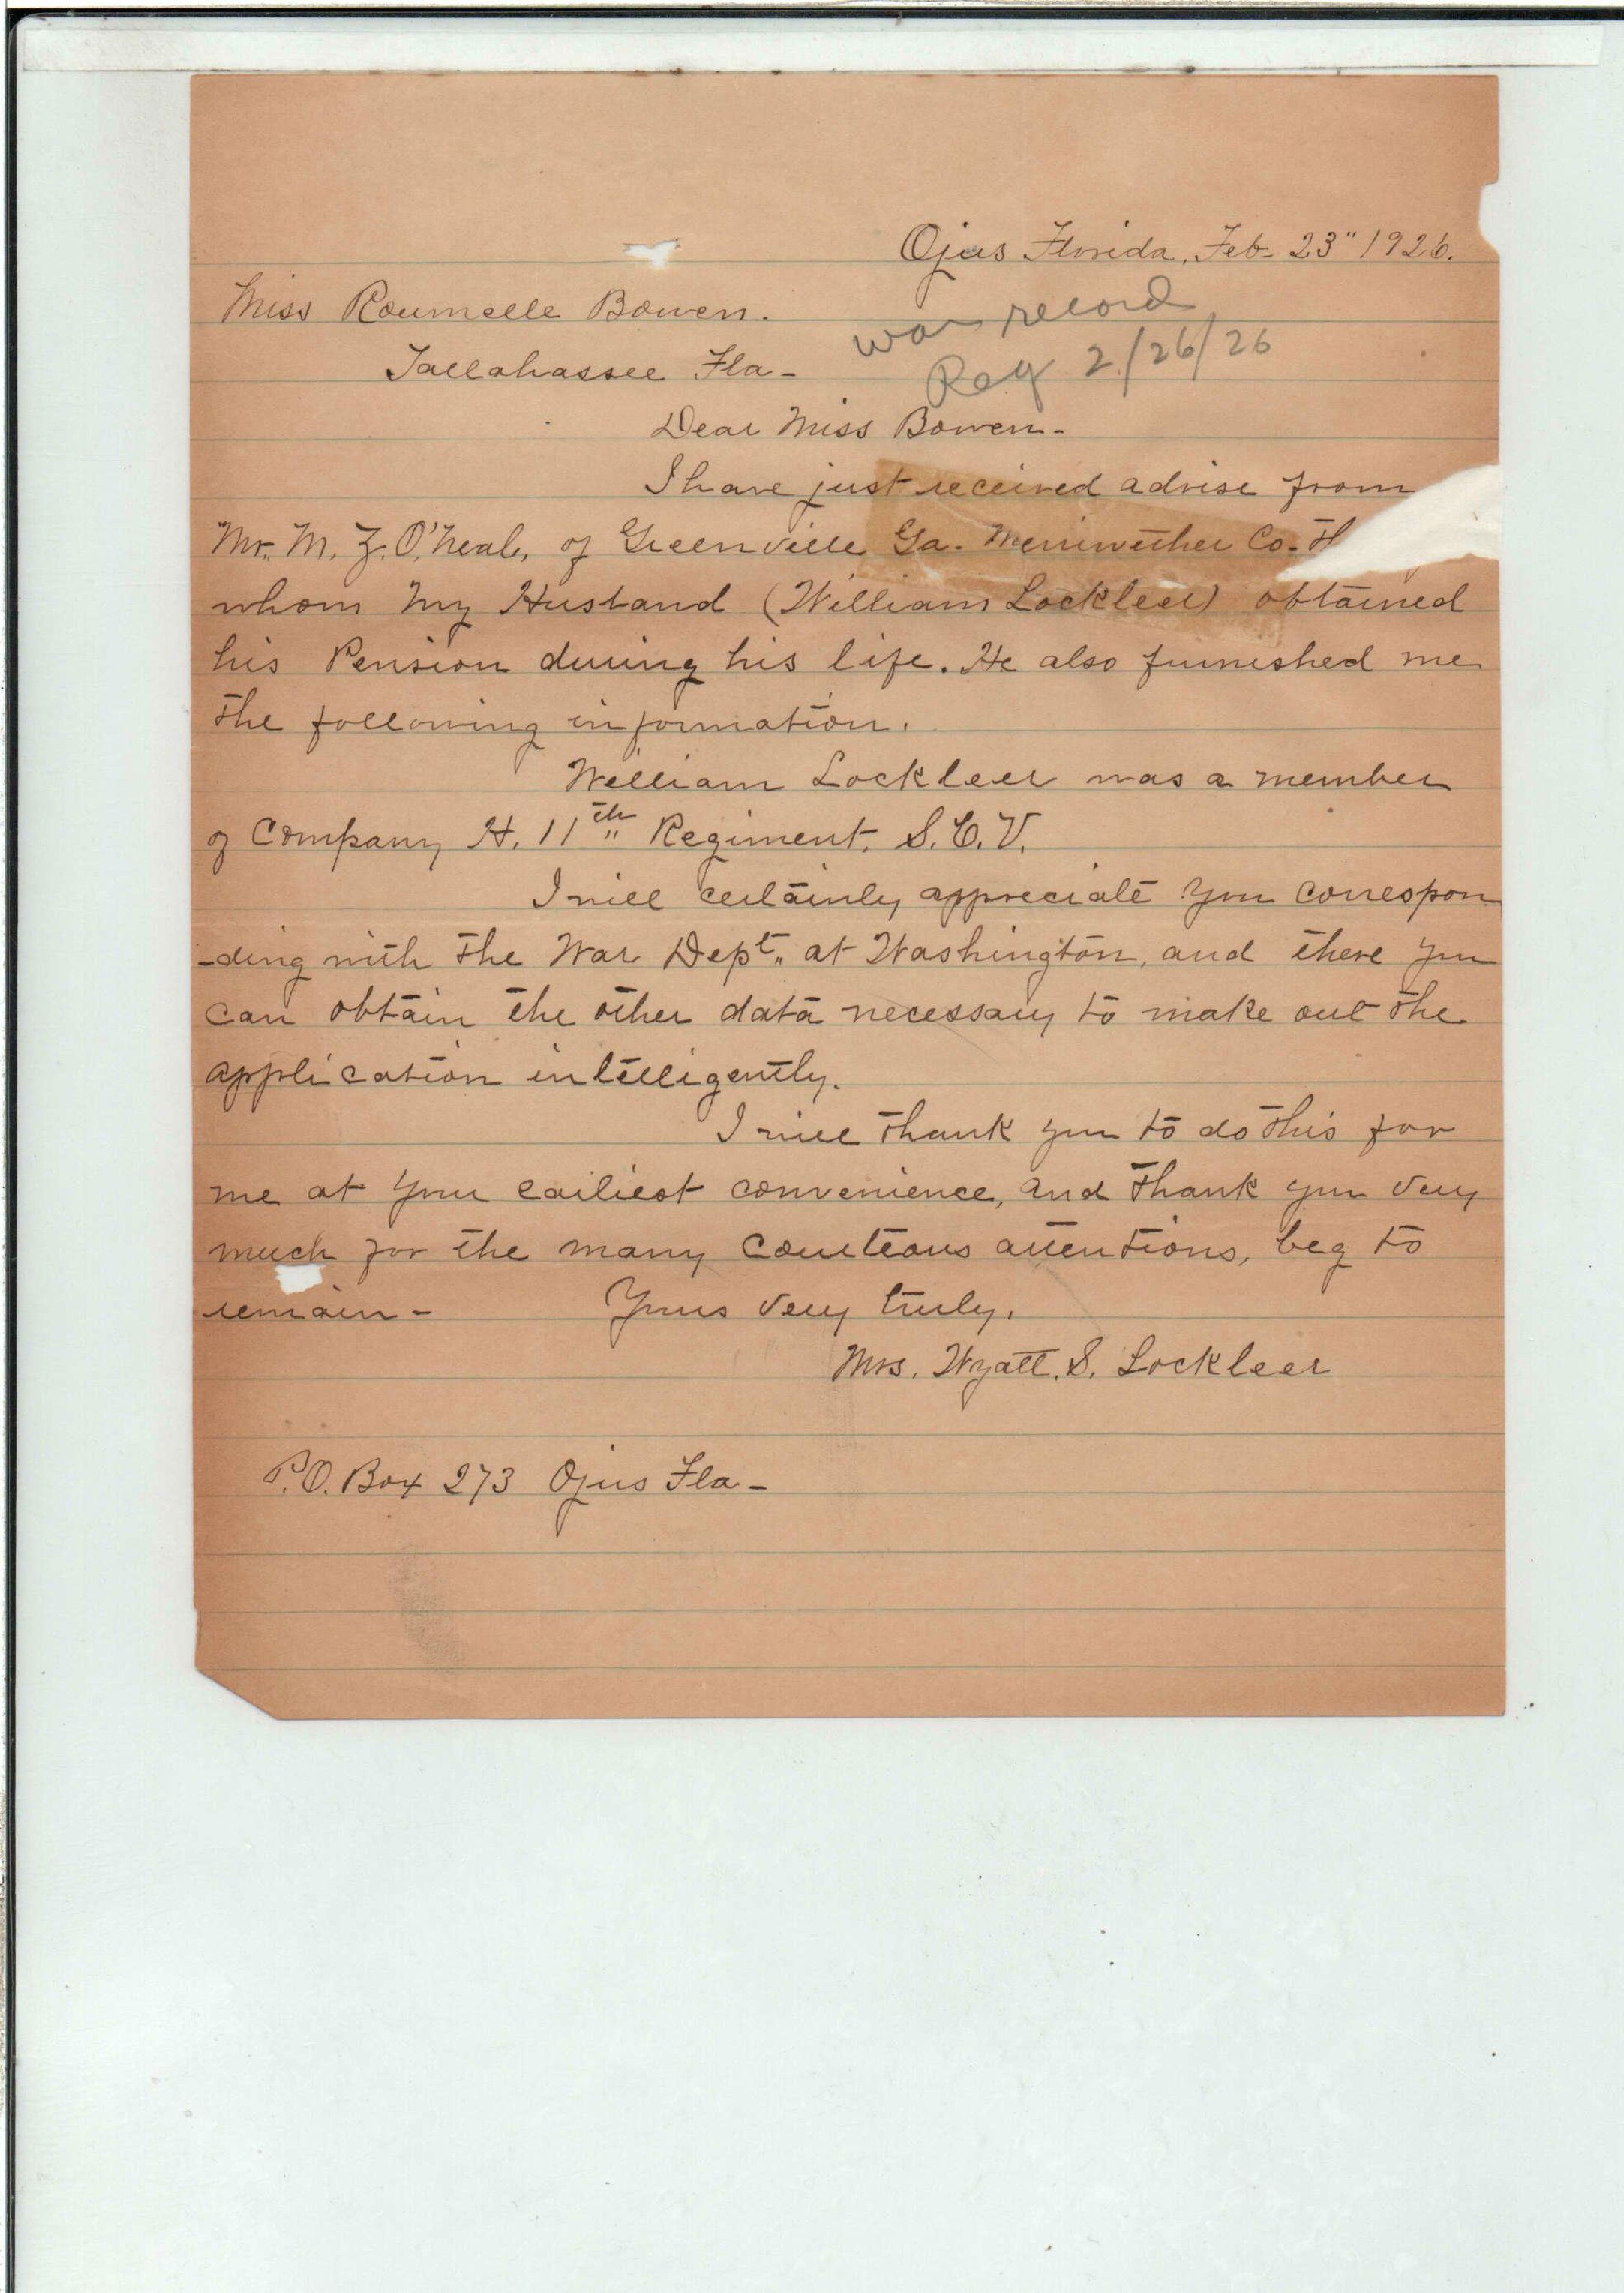 Ojus Florida, Feb- 23" 1926.
Miss Roumelle Bowen.
war record
Tallahassee Fla-
Req 2/26/26
Dear Miss Bowen-
I have just received advise from
Mr. M. Z. O'Neal, of Greenville Ga. Merriwether Co-
whom my Husband (William Lockleer) obtained
his Pension during his life. He also furnished me
the following information.
William Lockleer was a member
of Company H. 11th" Regiment. S.C.V.
I will certainly appreciate you correspon
-ding with the War Dept" at Washington, and there you
can obtain the other data necessary to make out the
application intelligently.
I will thank you to do this for
me at your earliest convenience, and thank you very
much for the many courteous attentions, beg to
remain- Yours very truly.
Mrs. Wyatt. S. Lockleer
P.O. Box 273 Ojus Fla-